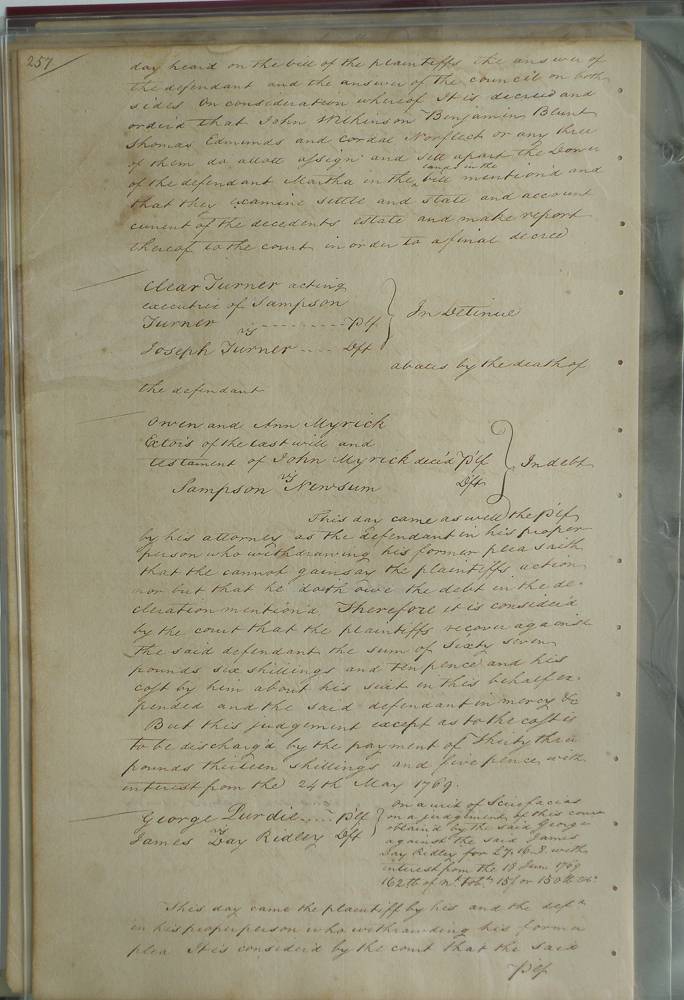 257
day heard on the bill of the plaintiffs the answer of
the defendant and the answer of the council on both
sides On consideration whereof It is decreed and
order'd that John Wilkinson Benjamin Blunt
Thomas Edmunds and Cordal Norfleet or any three
of them do allott assign and sett apart the Dower
lands in the
of the defendant Martha in the bill mention'd and
that they examine settle and state and account
current of the decedents estate and make report
thereof to the court in order to a final decree
Clear Turner acting
executrix of Sampson
Turner Plf
vs
In Detinue
Joseph Turner Dft
abates by the death of
the defendant
Owen and Ann Myrick
Extors of the last will and
testament of John Myrick dec'd Plf
In debt
vs
Sampson Newsum Dft
This day came as well the Plf
by his attorney as the defendant in his proper
person who withdrawing his former plea saith
that he cannot gainsay the plaintiffs action
nor but that he doth owe the debt in the de-
claration mention'd Therefore it is consider'd
by the court that the plaintiffs recover against
the said defendant the sum of Sixty seven
pounds six shillings and ten pence and his
cost by him about his suit in this behalf ex-
pended and the said defendant in mercy &c
But this judgement except as to the cost is
to be discharg'd by the payment of Thirty three
pounds thirteen shillings and five pence with
interest from the 24th May 1769.
George Purdie Plf
vs
James Day Ridley Dft
On a writ of Scirefacias
on a judgement of this court
obtain'd by the said George
against the said James
Day Ridley for 27.16.8 with
interest from the 18 June 1769
This day came the plaintiff by his and the deft
in his proper person who withrawding his former
plea It is consider'd by the court that the said
Plf